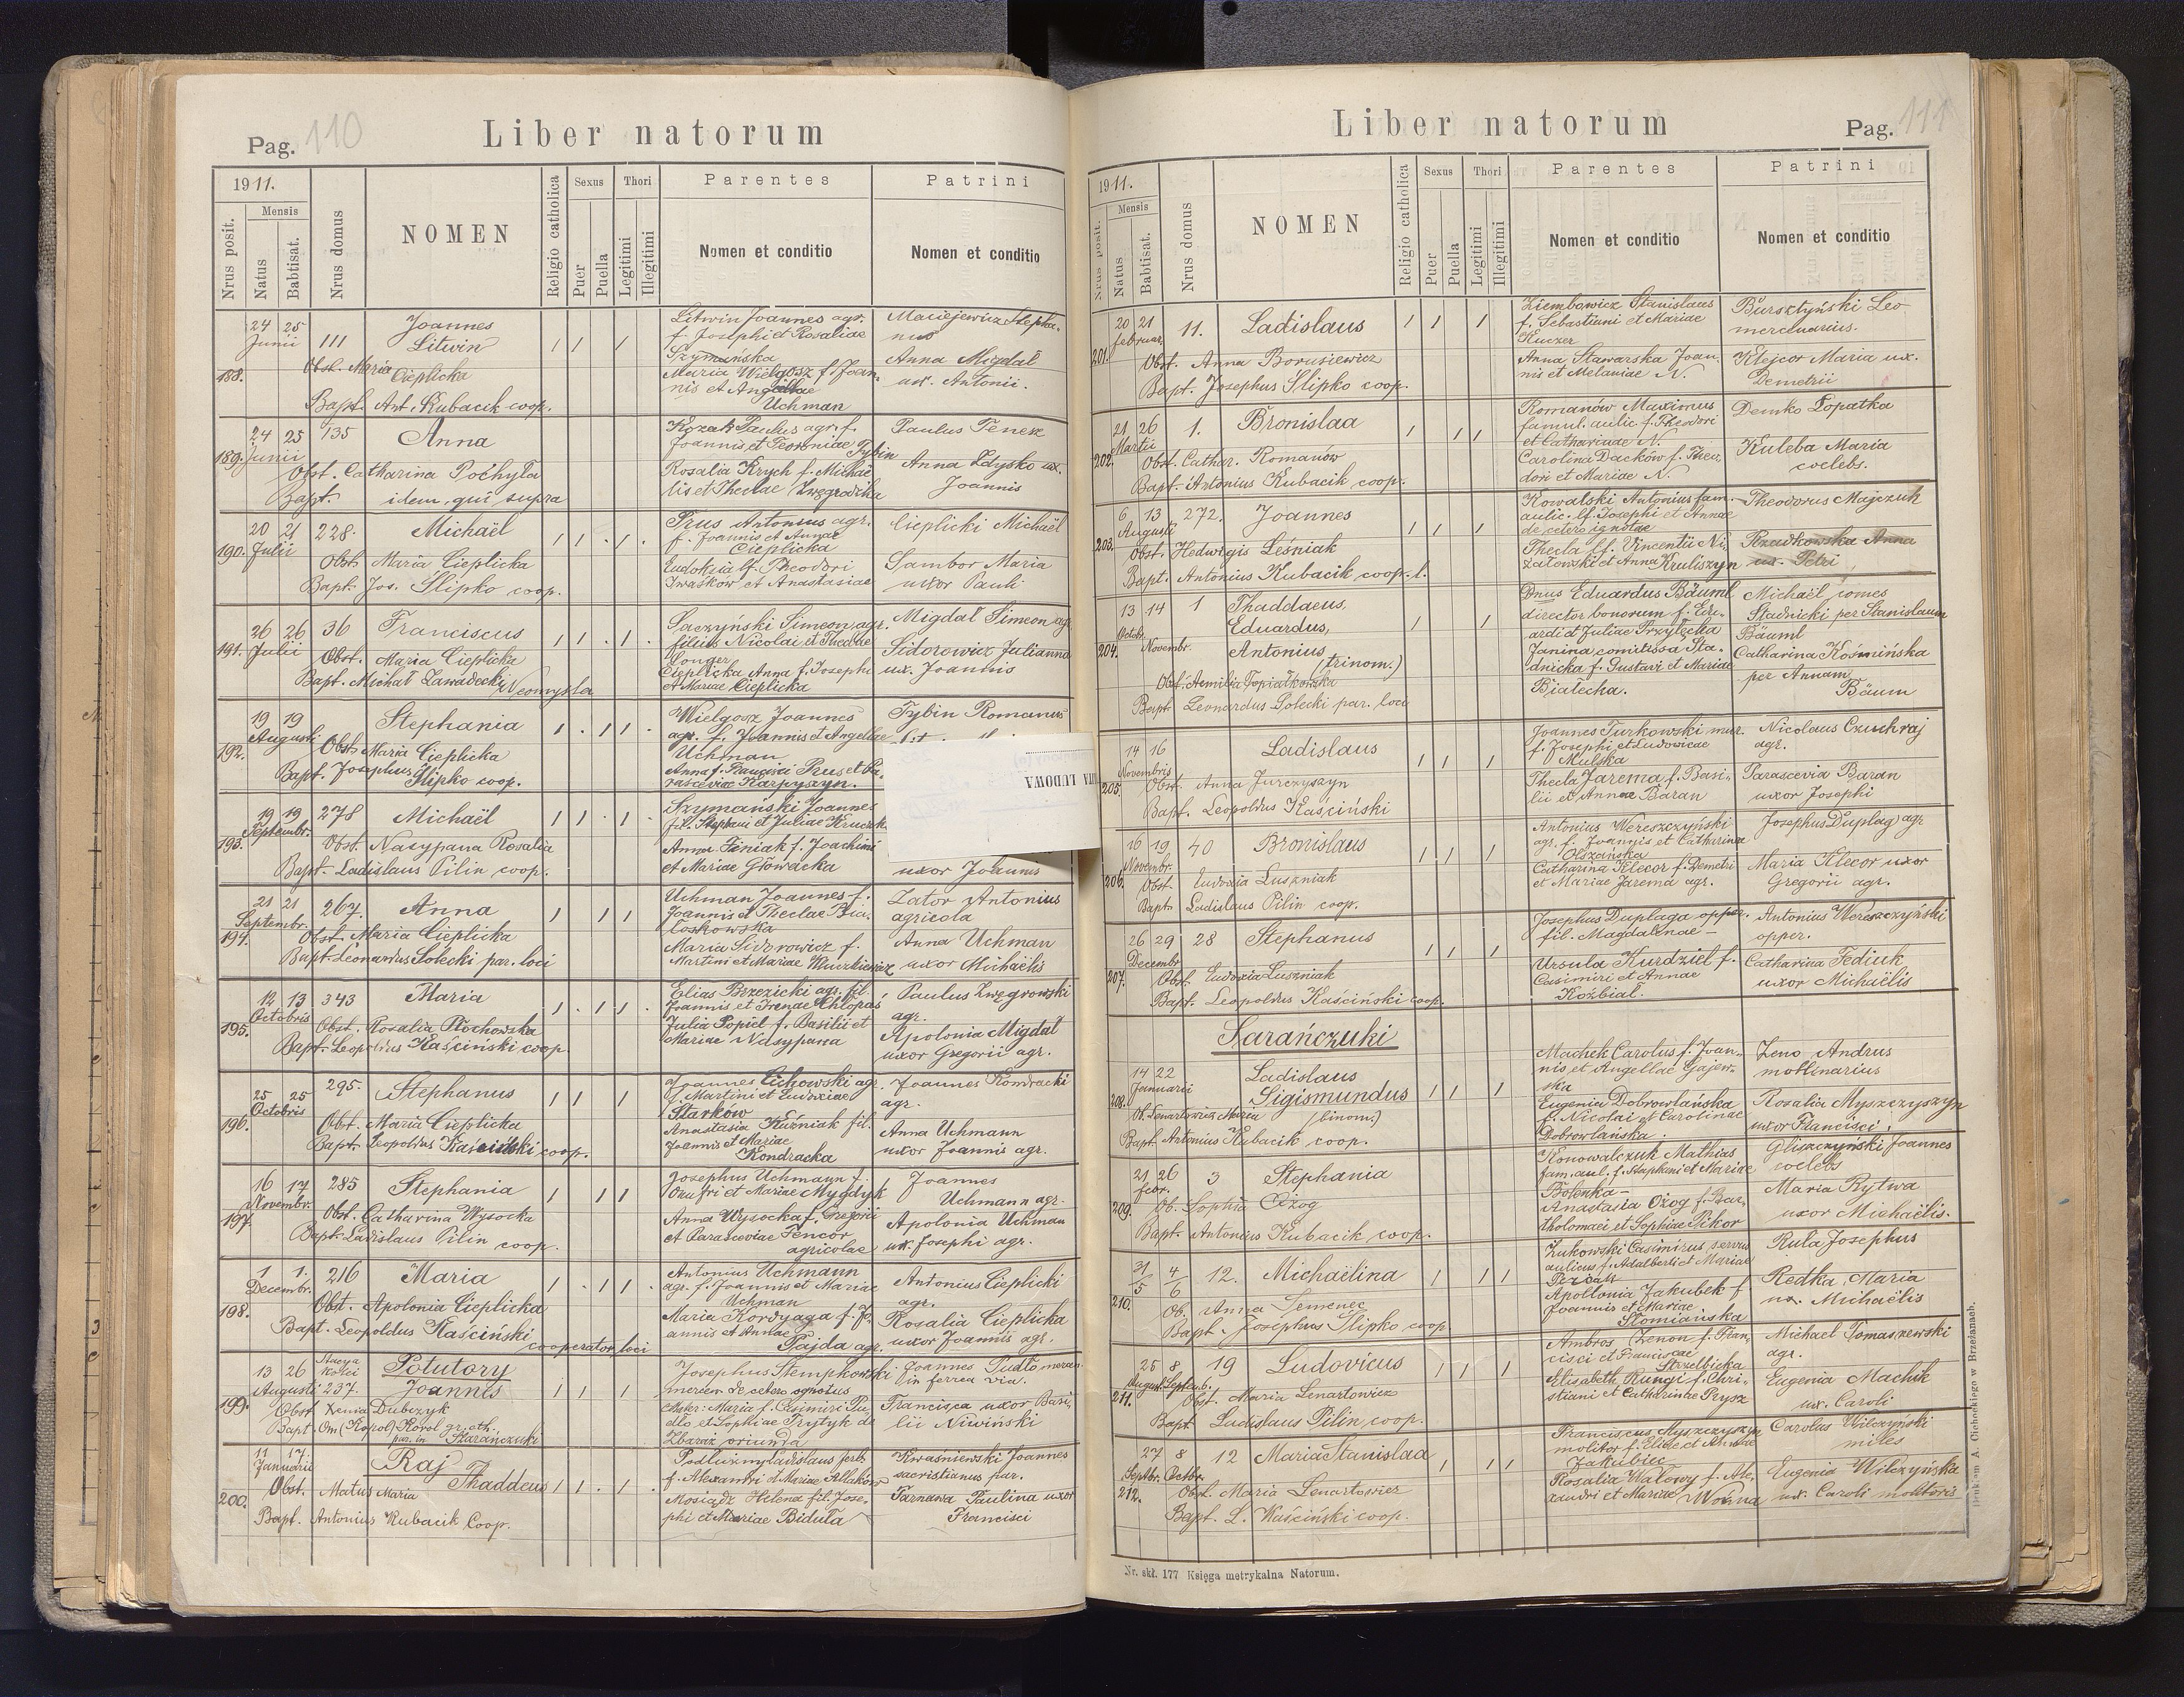 Pag. 110
Liber natorum
1911.
Mensis
Nrus posit.
Natus
Babtisat.
Nrus domus
NOMEN
Religio catholica
Sexus
Puer
Puella
Thori
Legitimi
Illegitimi
Parentes
Nomen et conditio
Patrini
Nomen et conditio
188.
24 25
Junii
111
Joannes
Litwin
Obst. Maria
Cieplicka
Bapt. Ant. Kubacik coop.
Litwin Joannes agr.
f. Josephi et Rosaliae
Szymańska
Maria Wielgosz f. Joan-
nis et Angellae
Uchman
Maciejewicz Stepha-
nus
Anna Migdal
ux. Antonii.
189.
24 25
Junii
135
Anna
Obst. Catharina Pochyła
Bapt. idem, qui supra
Kozak Paulus agr. f.
Joannis et Feroniae Tybin
Rosalia Krych f. Michae
lis et Theclae Zwęgrodzka
Paulus Tenesz
Anna Zdysko ux.
Joannis
190.
20 21
Julii
228.
Michaël
Obst. Maria Cieplicka
Bapt. Jos. Slipko coop.
Prus Antonius agr.
f. Joannis et Annae
Cieplicka
Eudoksia lf. Theodori
Iwasków et Anastasiae
Cieplicki Michaël
Sambor Maria
uxor Pauli
191.
26 26
Julii
36
Franciscus
Obst. Maria Cieplicka
Bapt. Michał Zawadecki Neomysta
Saczyński Simeon agr.
filius Nicolai et Theclae
Conger
Cieplicka Anna f. Josephi
et Mariae Cieplicka
Migdał Simeon agr.
Sidorowicz Julianna
ux. Joannis
192.
19 19
Augusti
Stephania
Obst. Maria Cieplicka
Bapt. Josephus Slipko coop.
Wielgosz Joannes
agr. f. Joannis et Angellae
Uchman
Anna f. Francisci Prus et Pa-
rasceviae Karpyszyn.
Tybin Romanus
LUDOWA
193.
19 19
Septembr.
278
Michaël
Obst. Nasypana Rosalia
Bapt. Ladislaus Pilin coop.
Szymański Joannes
fil. Stephani et Juliae Kruczk.
Anna Siniak f. Joachimi
et Mariae Głowacka
uxor Joannis
194.
21 21
Septembr.
267.
Anna
Obst. Maria Cieplicka
Bapt. Leonardus Sołecki par. loci
Uchman Joannes f.
Joannis et Theclae Bia-
łoskowska
Maria Sidorowicz f.
Martini et Mariae Kluczkiewicz
Zator Antonius
agricola
Anna Uchman
uxor Michaëlis
195.
12 13
Octobris
343
Maria
Obst. Rosalia Płochowska
Bapt. Leopoldus Kaściński coop.
Elias Brzezicki agr. fil.
Joannis et Irenae Chłopaś
Julia Popiel f. Basilii et
Mariae Nasypana
Paulus Zwęgrowski
agr.
Apolonia Migdał
uxor Gregorii agr.
196.
25 25
Octobris
295.
Stephanus
Obst. Maria Cieplicka
Bapt. Leopoldus Kaściński coop.
Joannes Cichowski agr.
f. Martini et Eudoxiae
Starków
Anastasia Kuźniak fil.
Joannis et Mariae
Kondracka
Joannes Kondracki
agr.
Anna Uchmann
uxor Joannis agr.
197.
16 17
Novembr.
285
Stephania
Obst. Catharina Wysocka
Bapt. Ladislaus Pilin coop.
Josephus Uchmann f.
Onufri et Mariae Mygdyk
Anna Wysocka f. Gregorii
et Parasceviae Fencor
agricolae
Joannes
Uchmann agr.
Apolonia Uchman
ux. Josephi agr.
198.
1 1.
Decembr.
216
Maria
Obst. Apolonia Cieplicka
Bapt. Leopoldus Kaściński
cooperator loci
Antonius Uchmann
agr. f. Joannis et Mariae
Uchman
Maria Kordyaga f. Jo-
annis et Annae
Pajda agr.
Antonius Cieplicki
agr.
Rosalia Cieplicka
uxor Joannis agr.
199.
13 26
Augusti
Stacya
Kolei
237.
Potutory
Joannes
Obst. Xenia Dubczyk
Bapt. Om (Kopol) Korol gr. cath.
par. in Szarańczuki
Josephus Stempkowski
mercen. de cetero ignotus
Mater: Maria f. Casimiri Pu-
dło et Sophiae Prytyk de
Zbaraż oriunda
Joannes Pudło mercen.
in ferrea via.
Francisca uxor Basi-
lii Niwiński
200.
11 17.
Januarii
Raj
Thaddeus
Obst. Matus Maria
Bapt. Antonius Kubacik Coop.
Podluzny Ladislaus
f. Alexandri et Mariae
Mosiądz Helena fil. Jose-
phi et Mariae Bidula
Kwaśniewski Joannes
sacristianus par.
Tarnawa Paulina uxor
Francisci
Pag. 111
Liber natorum
1911.
Mensis
Nrus posit.
Natus
Babtisat.
Nrus domus
NOMEN
Religio catholica
Sexus
Puer
Puella
Thori
Legitimi
Illegitimi
Parentes
Nomen et conditio
Patrini
Nomen et conditio
201.
20 21
februar.
11.
Ladislaus
Obst. Anna Borusiewicz
Bapt. Josephus Slipko coop.
Ziembowicz Stanislaus
f. Sebastiani et Mariae
Kuczer
Anna Stawarska Joan-
nis et Melaniae N.
Bursztyński Leo
mercenarius.
Klejcor Maria ux.
Demetrii
202.
21 26
Martii
1.
Bronislaa
Obst. Cathar. Romanów
Bapt. Antonius Kubacik coop.
Romanów Maximus
famul. aulic. f. Theodori
et Catharinae N.
Carolina Dacków f. Theo-
dori et Mariae N.
Demko Łopatka
Kuleba Maria
coelebs.
203.
6 13
Augusti
272.
Joannes
Obst. Hedwigis Leśniak
Bapt. Antonius Kubacik coop. l.
Kowalski Antonius fam.
aulic. lf. Josephi et Annae
de cetero ignotae
Thecla lf. Vincentii Ni-
załowski et Anna Kruliszyn
Theodorus Majczuk
Rzadkowska Anna
ux. Petri
204.
13 14
Octobr. Novembr.
1
Thaddaeus,
Eduardus,
Antonius
(trinom.)
Obst. Aemilia Topiałkowska
Bapt. Leonardus Sołecki par. loci
Dnus Eduardus Bäuml
director bonorum f. Edu-
ardi et Juliae Przyłęcka
Janina comitissa Sta-
dnicka f. Gustavi et Mariae
Białecha.
Michaël comes
Stadnicki per Stanislaum
Bäuml
Catharina Kosmińska
per Annam
Bäum
205.
14 16
Novembris
Ladislaus
Obst. Anna Jurczyszyn
Bapt. Leopoldus Kaściński
Joannes Turkowski mur.
f. Josephi et Ludovicae
Mulska
Thecla Jarema f. Basi-
lii et Annae Baran
Nicolaus Czuchraj
agr.
Parascevia Baran
uxor Josephi
206.
16 19
Novembr.
40
Bronislaus
Obst. Eudoxia Luszniak
Bapt. Ladislaus Pilin coop.
Antonius Wereszczyński
agr. f. Joannis et Catharina
Olszańska
Catharina Klecor f. Demetri
et Mariae Jarema agr.
Josephus Duplag agr
Maria Klecor uxor
Gregorii agr.
207.
26 29
Decembr.
28
Stephanus
Obst. Eudoxia Luszniak
Bapt. Leopoldus Kaściński coop.
Josephus Duplaga opper.
fil. Magdalenae –
Ursula Kurdziel f.
Casimiri et Annae
Koźbiał.
Antonius Wereszczyński
opper.
Catharina Fediuk
uxor Michaëlis
Sarańczuki
208.
14 22
Januarii
Ladislaus
Sigismundus
(binom.)
Ob. Lenartowicz Maria
Bapt. Antonius Kubacik coop.
Machek Carolus f. Joan-
nis et Angellae Gajew-
ska
Eugenia Dobrowlańska
f. Nicolai et Carolinae
Dobrowlańska.
Zeno Andrus
mollinarius
Rosalia Myszczyszyn
uxor Francisci.
209.
21 26
febr.
3
Stephania
Ob. Sophia Ożog
Bapt. Antonius Kubacik coop.
Konowalczuk Mathias
fam. aul. f. Stephani et Mariae
Bolenka –
Anastasia Ożog f. Bar-
tholomaei et Sophiae Sikor
Gliszczyński Joannes
coelebs
Maria Rytwa
uxor Michaëlis.
210.
31/5 4/6
12.
Michaëlina
Ob. Anna Semenec
Bapt. Josephus Slipko coop
Żukowski Casimirus servus
aulicus f. Adalberti et Mariae
Apollonia Jakubek f.
Joannis et Mariae
Słomiańska
Rula Josephus
Redka Maria
ux. Michaëlis
211.
25 8
August. Septemb.
19
Ludovicus
Obst. Maria Lenartowicz
Bapt. Ladislaus Pilin coop.
Ambros Zenon f. Fran-
cisci et Franciscae
Strzelbicka
Elisabeth Rungi f. Chri-
stiani et Catharinae Prysz
Michael Tomaszewski
agr.
Eugenia Machik
ux. Caroli
212.
27 8
Septbr. Octbr.
12
Maria Stanislaa
Obst. Maria Lenartowicz
Bapt. L. Kaściński coop.
Franciscus Myszczyszyn
molitor f. Eliae et Annae
Jakubiec
Rosalia Walowy f. Ale-
xandri et Mariae Woźna
Carolus Wilczyński
miles
Eugenia Wilczyńska
ux. Caroli molitoris
Nr. skł. 177 Księga metrykalna Natorum.
Drukiem A. Ciechockiego w Brzeżanach.